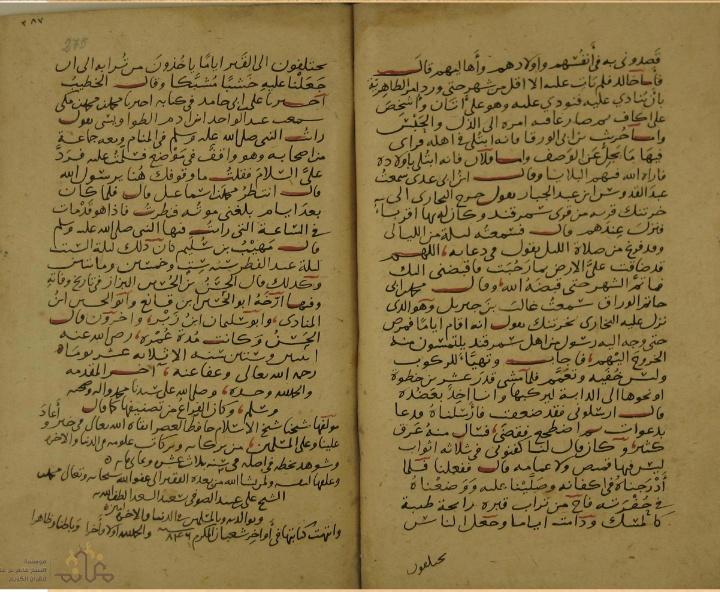 قصدوني به في أنفسهم واولادهم وأهاليهم قال
فاما خالد فلم يأت عليه الا اقل من شهر حتى ورد امر الطاهرية
بان ينادي عليه فنودي عليه وهو على اتان واشخص
على اكاف ثم صار عاقبة امره الى الذل والحبس
واما حريث بن ابي الورقا فانه ابتلي في اهله فراى
فيها ما يجل عن الوصف واما فلان فانه ابتلي باولاده
فاراه الله فيهم البلايا وقال ابن عدي سمعت
عبد القدوس بن عبد الجبار يقول خرج البخاري الى
خرتنك قرية من قرى سمرقند وكان له بها اقربا
فنزل عندهم قال فسمعته ليلة من الليالي
وقد فرغ من صلاة الليل يقول في دعايه اللهم
قد ضاقت علي الارض بما رحبت فاقبضني اليك
فما تم الشهر حتى قبضه الله وقال محمد بن ابي
حاتم الوراق سمعت غالب بن جبريل وهو الذي
نزل عليه البخاري بخرتنك يقول انه اقام اياما فمرض
حتى وجه اليه رسول من اهل سمرقند يلتمسون منه
الخروج اليهم فاجاب وتهيأ للركوب
ولبس خفيه وتعمم فلما مشى قدر عشرين خطوة
او نحوها الى الدابة ليركبها وانا اخذ بعضده
قال ارسلوني فقد ضعفت فارسلناه فدعا
بدعوات ثم اضطجع فقضى فسال منه عرق
كثير وكان قال لنا كفنوني في ثلاثة اثواب
ليس فيها قميص ولا عمامة قال ففعلنا فلما
أدرجناه في اكفانه وصلينا عليه ووضعناه
في حفرته فاح من تراب قبره رايحة طيبة
كالمسك ودامت اياما وجعل الناس
يختلفون
يختلفون الى القبر اياما ياخذون من ترابه الى ان
جعلنا عليه خشبا مشبكا وقال الخطيب
سمعت عبد الواحد ابن ادم الطواويسي يقول
رايت النبي صلى الله عليه وسلم في المنام ومعه جماعة
من اصحابه وهو واقف في موضع فسلمت عليه فرد
علي السلام فقلت ما وقوفك هنا يرسول الله
قال انتظر محمد بن اسماعيل قال فلما كان
بعد ايام بلغني موته فنظرت فاذا هو قد مات
في الساعة التي رايت فيها النبي صلى الله عليه وسلم
قال مهيب بن سليم كان ذلك ليلة السبت
ليلة عيد الفطر سنة ست وخمسين ومايتين
وكذلك قال الحسن بن الحسين البزاز في تاريخ وفاته
وفيها ارخه ابو الحسين ابن قانع وابو الحسين ابن
المنادي وابو سليمان ابن زبر واخرون قال
الحسن وكانت مدة عمره رضي الله عنه
اثنين وستين سنة الا ثلاثة عشر يوما
رحمه الله تعالى وعفا عنه اخر المقدمة
والحمد لله وحده وصلى الله على سيدنا محمد واله وصحبه
وسلم وكان الفراغ من تصنيفها كما قال
مولفها شيخنا شيخ الاسلام حافظ العصر ابقاه الله تعالى في خير و أعاد
علينا وعلى المسلمين من بركاته وبركات علومه في الدنيا والاخرة
وشوهد بخطه في اصله في سنة ثلاث عشر وثماني ماية
وعلقها لنفسه ولمن شا الله من بعده الفقير الى عفو الله سبحانه وتعالى محمد بن
الشيخ علي
وبوالديه وبالمسلمين في الدنيا والاخرة
وانتهت كتابتها في أواخر شعبان المكرم ٨٤٦ والحمد لله اولا وآخرا وباطنا وظاهرا
٢٨٧
275